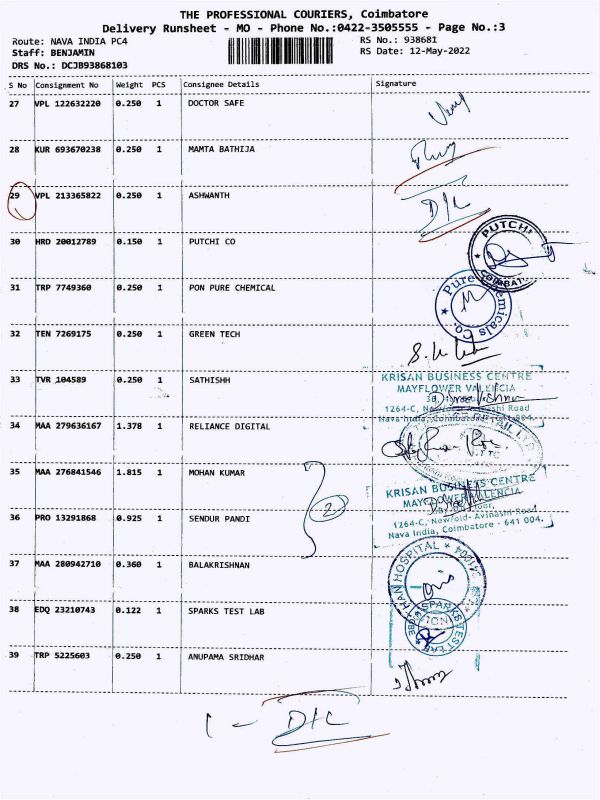 THE PROFESSIONAL COURIERS, Coimbatore
Delivery Runsheet - MO - Phone No.:0422-3505555 - Page No.:3
Route: NAVA INDIA PC4 RS No.: 938681
Staff: BENJAMIN RS Date: 12-May-2022
DRS No.: DCJB93868103
S No Consignment No Weight PCS Consignee Details Signature
27 VPL 122632220 0.250 1 DOCTOR SAFE
28 KUR 693670238 0.250 1 MAMTA BATHIJA
29 VPL 213365822 0.250 1 ASHWANTH D/L
30 HRD 20012789 0.150 1 PUTCHI CO PUTCHI COIMBATORE
31 TRP 7749360 0.250 1 PON PURE CHEMICAL Pure Chemicals Co.
32 TEN 7269175 0.250 1 GREEN TECH
33 TVR 104589 0.250 1 SATHISHH KRISAN BUSINESS CENTRE
MAYFLOWER VALENCIA
1264-C, Avinashi Road
Nava India, Coimbatore
34 MAA 279636167 1.378 1 RELIANCE DIGITAL RETAIL LTD
35 MAA 276841546 1.815 1 MOHAN KUMAR KRISAN BUSINESS CENTRE
MAYFLOWER VALENCIA
36 PRO 13291868 0.925 1 SENDUR PANDI 2 Floor,
1264-C, New/old- Avinashi Road
Nava India, Coimbatore - 641 004.
37 MAA 280942710 0.360 1 BALAKRISHNAN HOSPITAL 641004
38 EDQ 23210743 0.122 1 SPARKS TEST LAB SPARKS TEST LAB
39 TRP 5225603 0.250 1 ANUPAMA SRIDHAR
1 - D/L